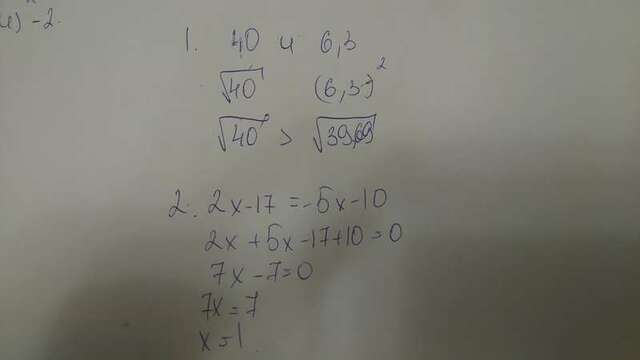 и) -2.
1. 40 и 6,3
√40 (6,3)²
√40 > √39,69
2. 2x-17=-5x-10
2x+5x-17+10=0
7x-7=0
7x=7
x=1